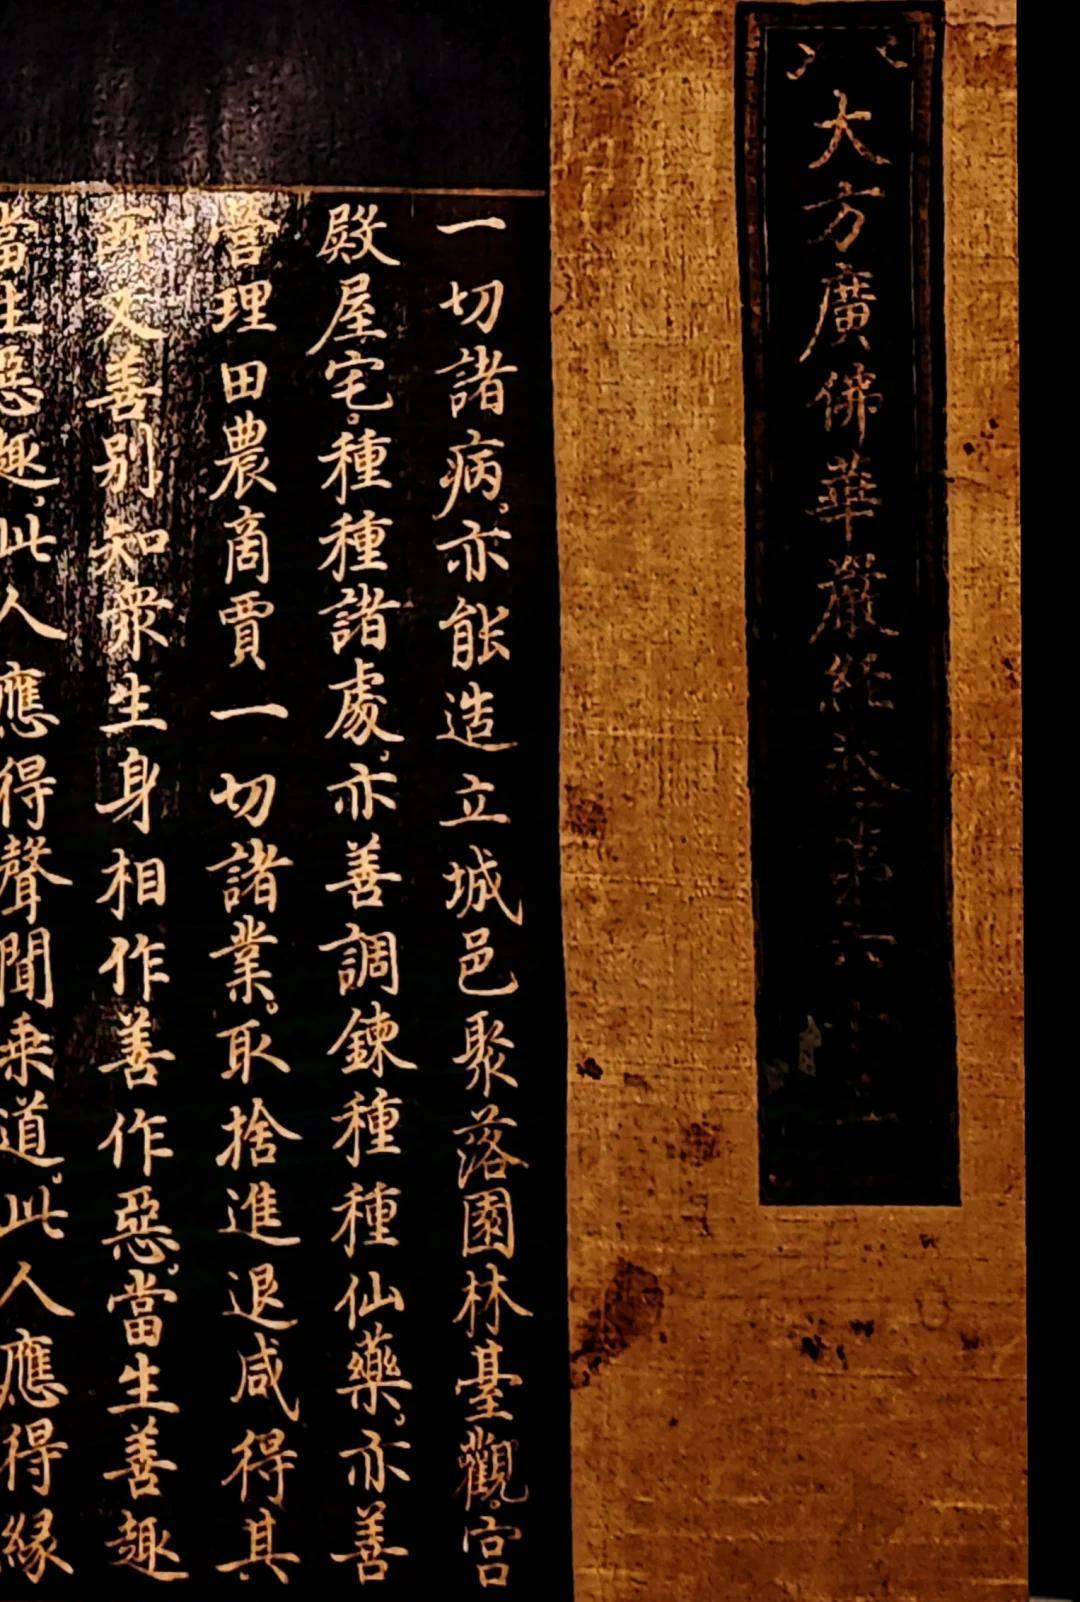 大方廣佛華嚴經卷第六十五
一切諸病。亦能造立城邑聚落園林臺觀。宮
殿屋宅。種種諸處。亦善調鍊種種仙藥。亦善
營理田農商賈一切諸業。取捨進退咸得其
所又善別知衆生身相作善作惡。當生善趣
當生惡趣。此人應得聲聞乗道。此人應得縁